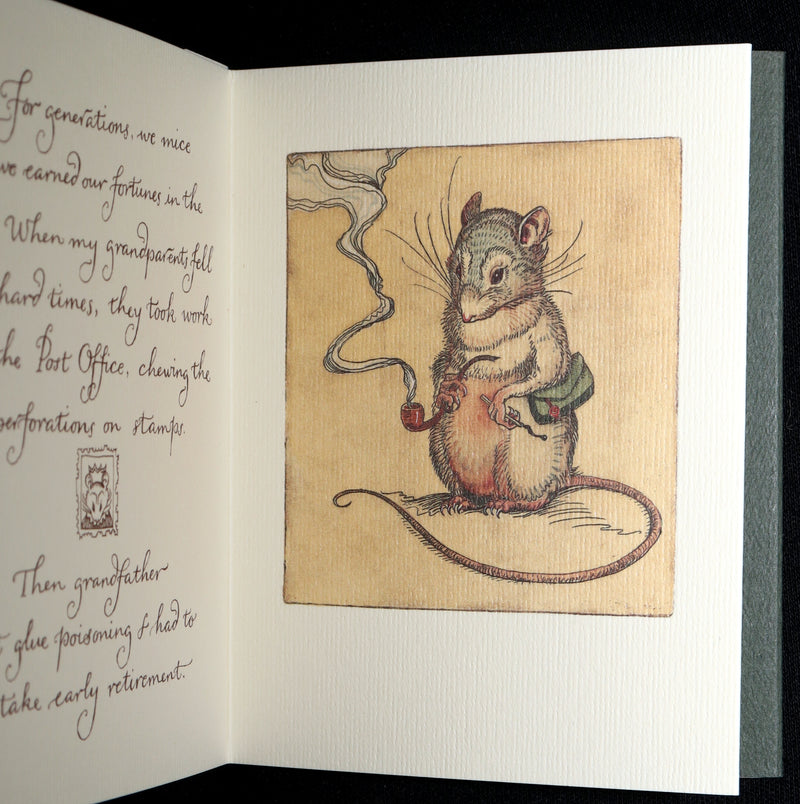 For generations, we mice
ve earned our fortunes in the
When my grandparents fell
hard times, they took work
he Post Office, chewing the
perforations on stamps.
Then grandfather
t glue poisoning & had to
take early retirement.